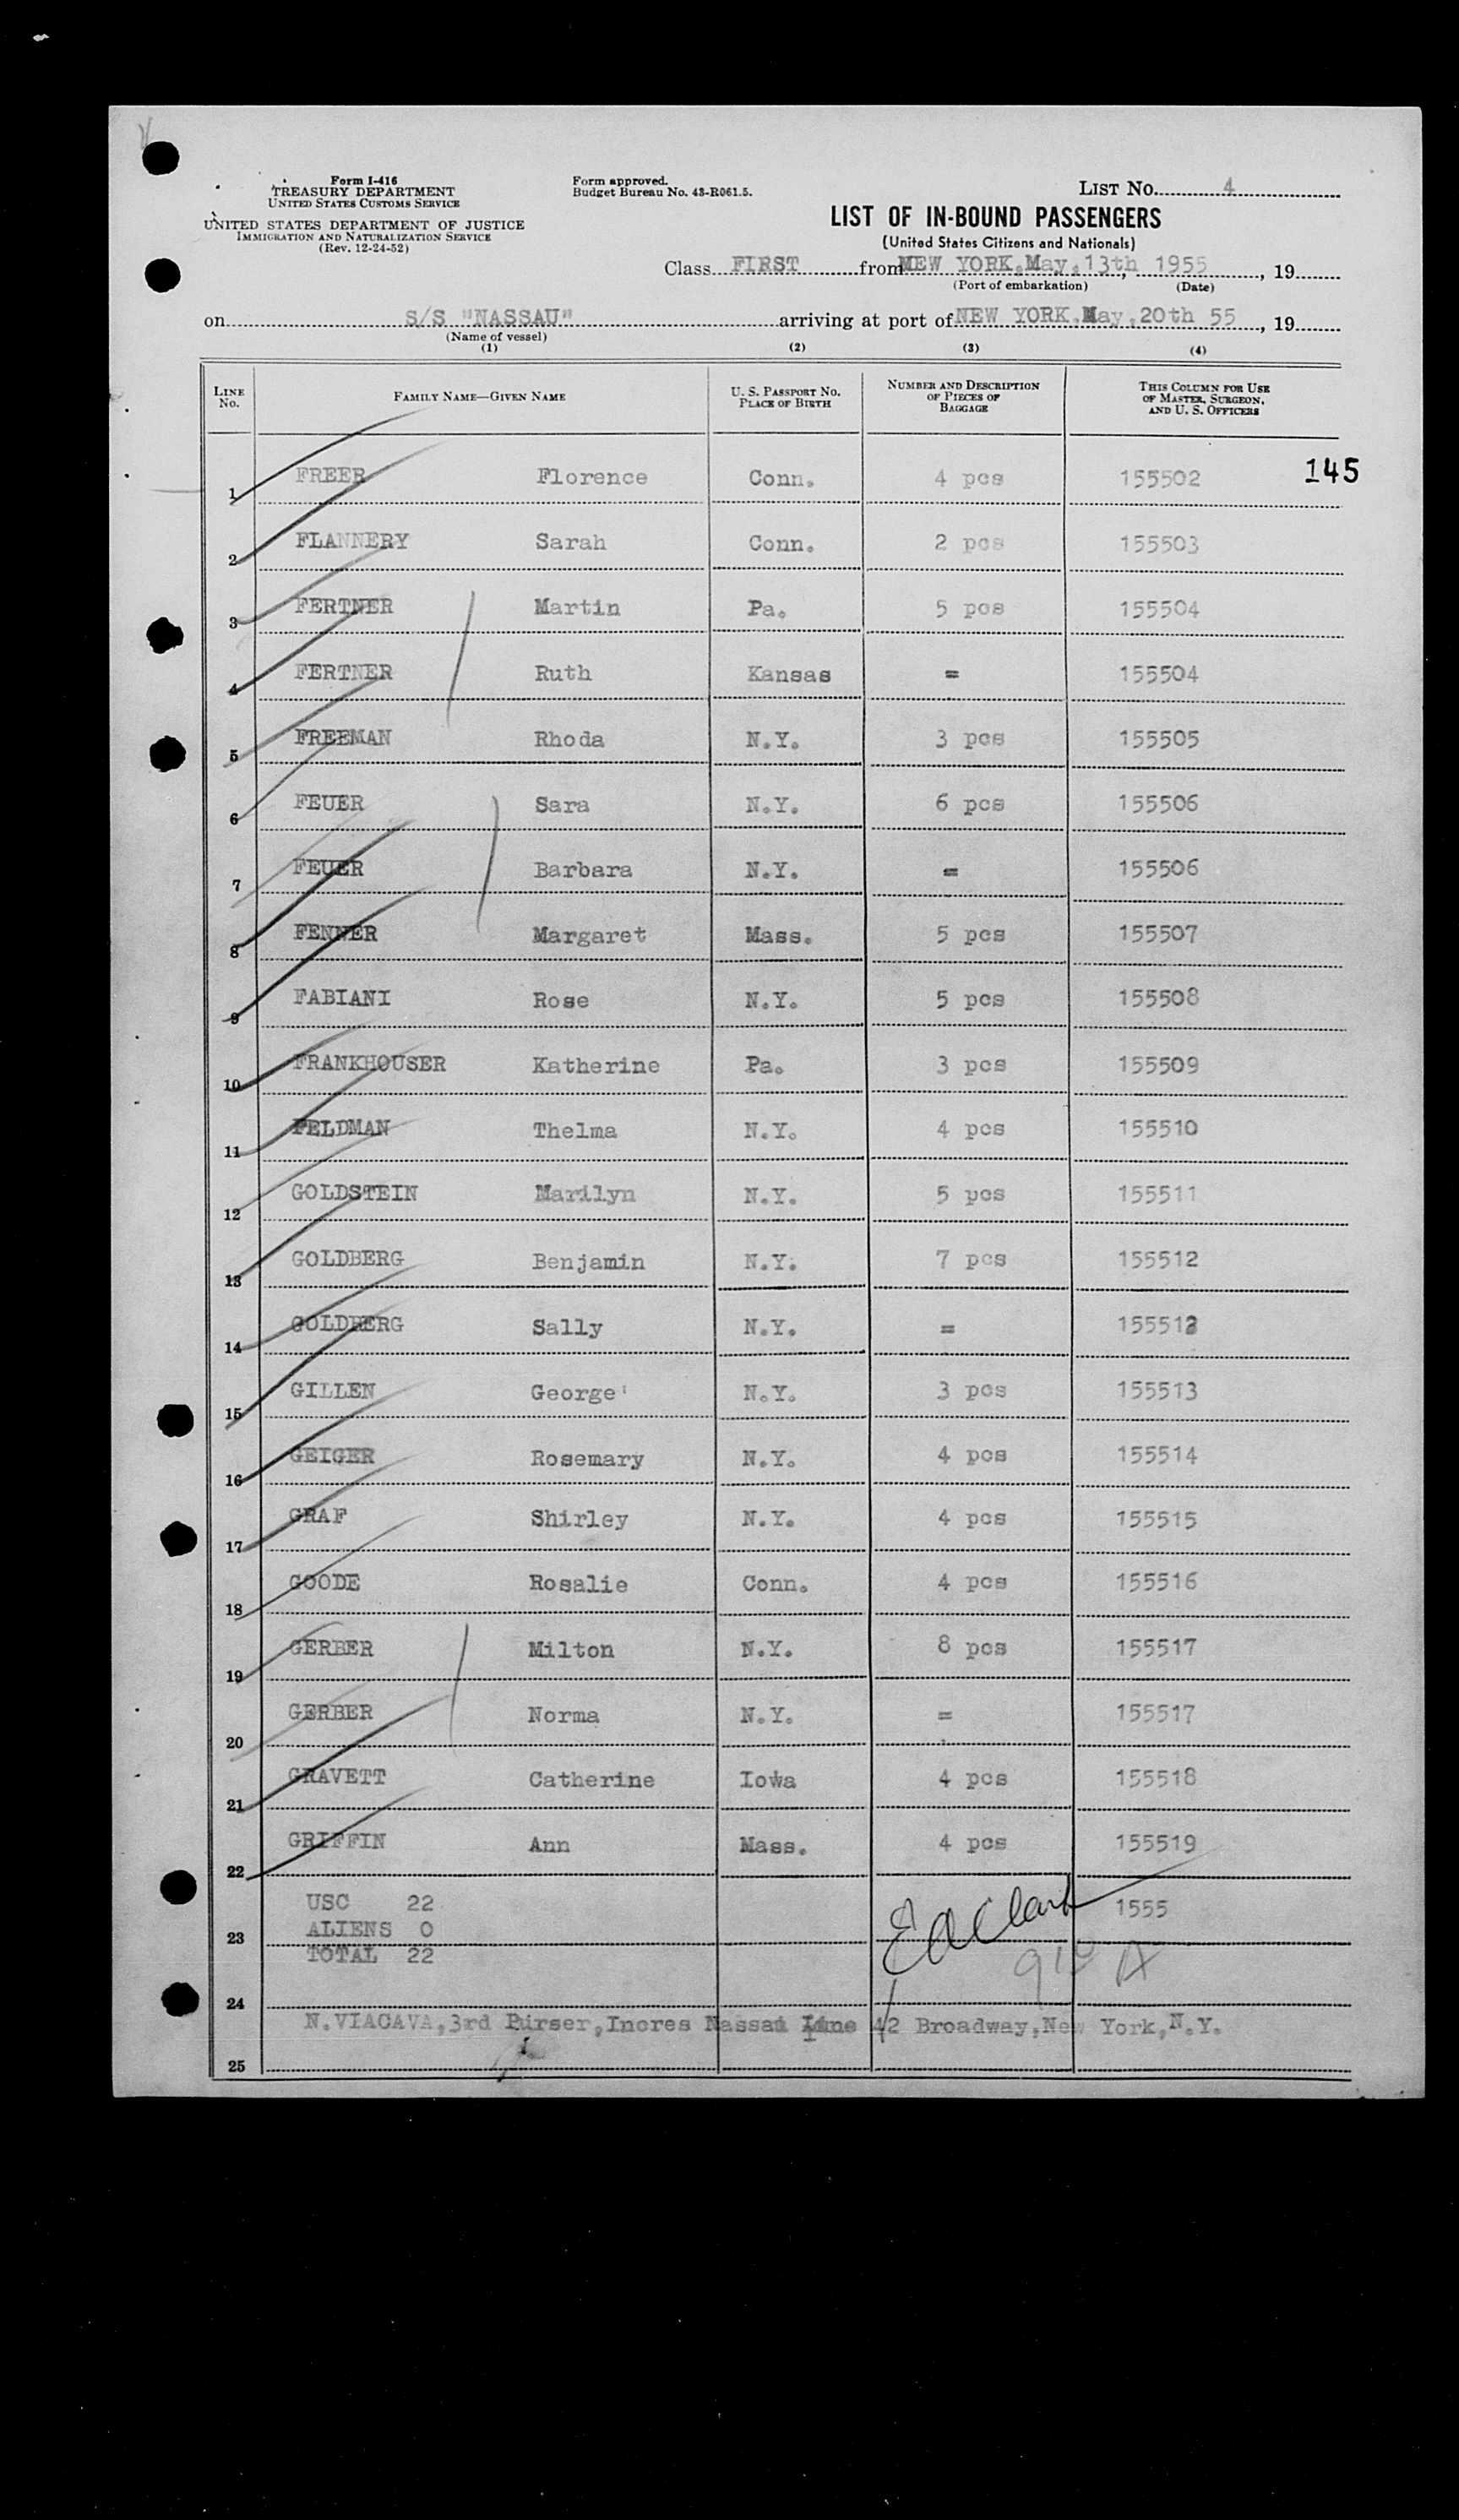 Form I-416
TREASURY DEPARTMENT
UNITED STATES CUSTOMS SERVICE
UNITED STATES DEPARTMENT OF JUSTICE
IMMIGRATION AND NATURALIZATION SERVICE
(Rev. 12-24-52)
Form approved.
Budget Bureau No. 43-R061.5.
LIST NO. 4
LIST OF IN-BOUND PASSENGERS
(United States Citizens and Nationals)
Class FIRST from MEW YORK, May, 13th, 1955, 19
(Port of embarkation) (Date)
on S/S "NASSAU" arriving at port of NEW YORK, May, 20th 55, 19
(Name of vessel)
(1) (2) (3) (4)
LINE No. FAMILY NAME—GIVEN NAME U. S. PASSPORT NO. PLACE OF BIRTH NUMBER AND DESCRIPTION OF PIECES OF BAGGAGE THIS COLUMN FOR USE OF MASTER, SURGEON, AND U. S. OFFICERS
145
1 FREER Florence Conn. 4 pcs 155502
2 FLANNERY Sarah Conn. 2 pcs 155503
3 FERTNER Martin Pa. 5 pcs 155504
4 FERTNER Ruth Kansas = 155504
5 FREEMAN Rhoda N.Y. 3 pcs 155505
6 FEUER Sara N.Y. 6 pcs 155506
7 FEUER Barbara N.Y. = 155506
8 FENNER Margaret Mass. 5 pcs 155507
9 FABIANI Rose N.Y. 5 pcs 155508
10 FRANKHOUSER Katherine Pa. 3 pcs 155509
11 FELDMAN Thelma N.Y. 4 pcs 155510
12 GOLDSTEIN Marilyn N.Y. 5 pcs 155511
13 GOLDBERG Benjamin N.Y. 7 pcs 155512
14 GOLDBERG Sally N.Y. = 155512
15 GILLEN George N.Y. 3 pcs 155513
16 GEIGER Rosemary N.Y. 4 pcs 155514
17 GRAF Shirley N.Y. 4 pcs 155515
18 GOODE Rosalie Conn. 4 pcs 155516
19 GERBER Milton N.Y. 8 pcs 155517
20 GERBER Norma N.Y. = 155517
21 GRAVETT Catherine Iowa 4 pcs 155518
22 GRIFFIN Ann Mass. 4 pcs 155519
USC 22 1555
ALIENS 0
23
TOTAL 22
E A Clark
24
N.VIACAVA,3rd Purser,Incres Nassau Line 42 Broadway,New York,N.Y.
25